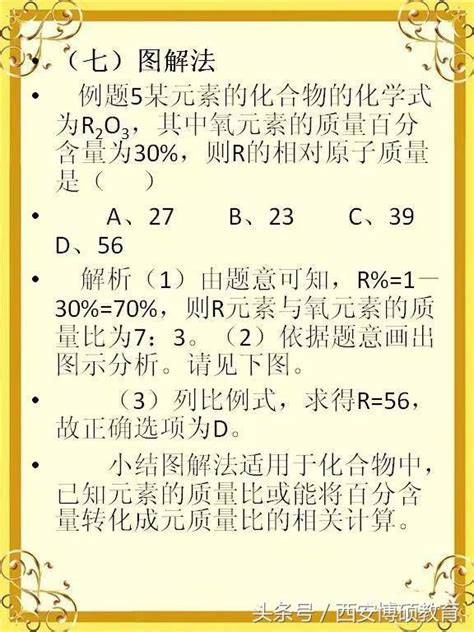 • （七）图解法
• 例题5某元素的化合物的化学式
为R₂O₃，其中氧元素的质量百分
含量为30%，则R的相对原子质量
是（ ）
• A、27 B、23 C、39
D、56
• 解析（1）由题意可知，R%=1－
30%=70%，则R元素与氧元素的质
量比为7：3。（2）依据题意画出
图示分析。请见下图。
• （3）列比例式，求得R=56，
故正确选项为D。
• 小结图解法适用于化合物中，
已知元素的质量比或能将百分含
量转化成元质量比的相关计算。
头条号／西安博硕教育